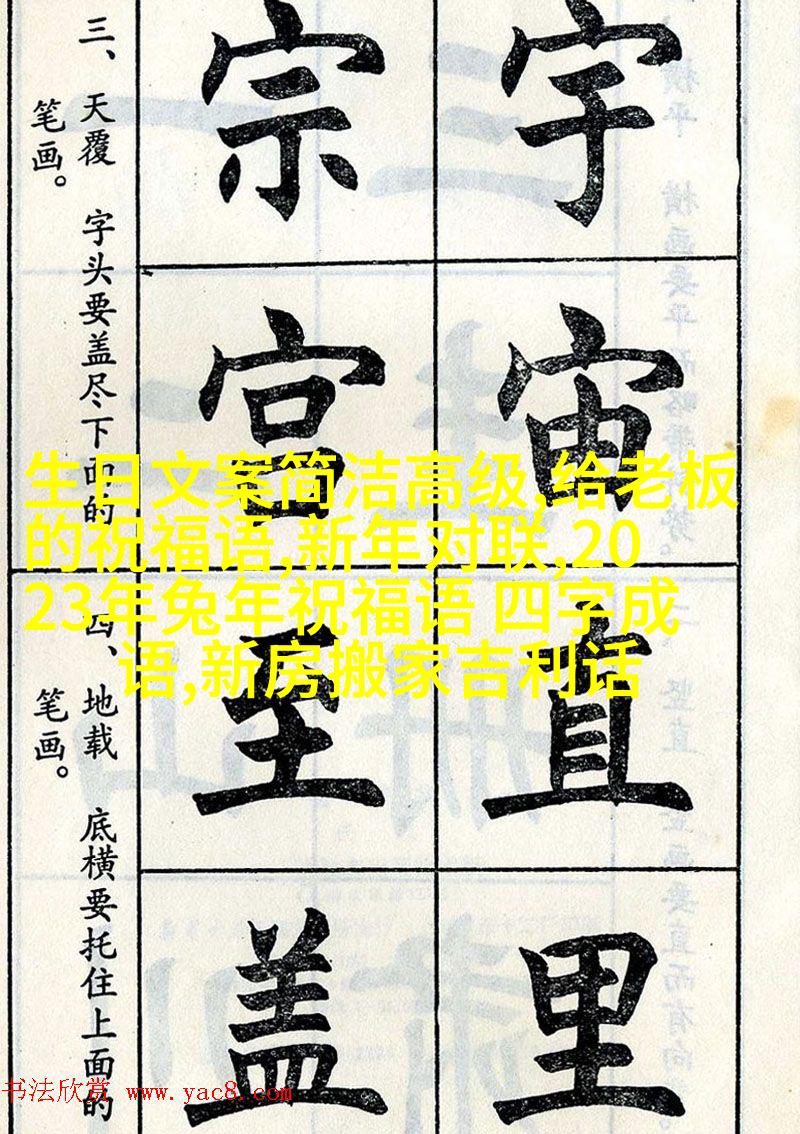 宇 宗
宙 宫
直 至
里 盖
三、天覆 字头要盖尽下面的
笔画。
四、地载 底横要托住上面的
笔画。
生日文案简洁高级,给老板
的祝福语,新年对联,20
23年兔年祝福语 四字成
语,新房搬家吉利话
书法欣赏 www.yac8.com